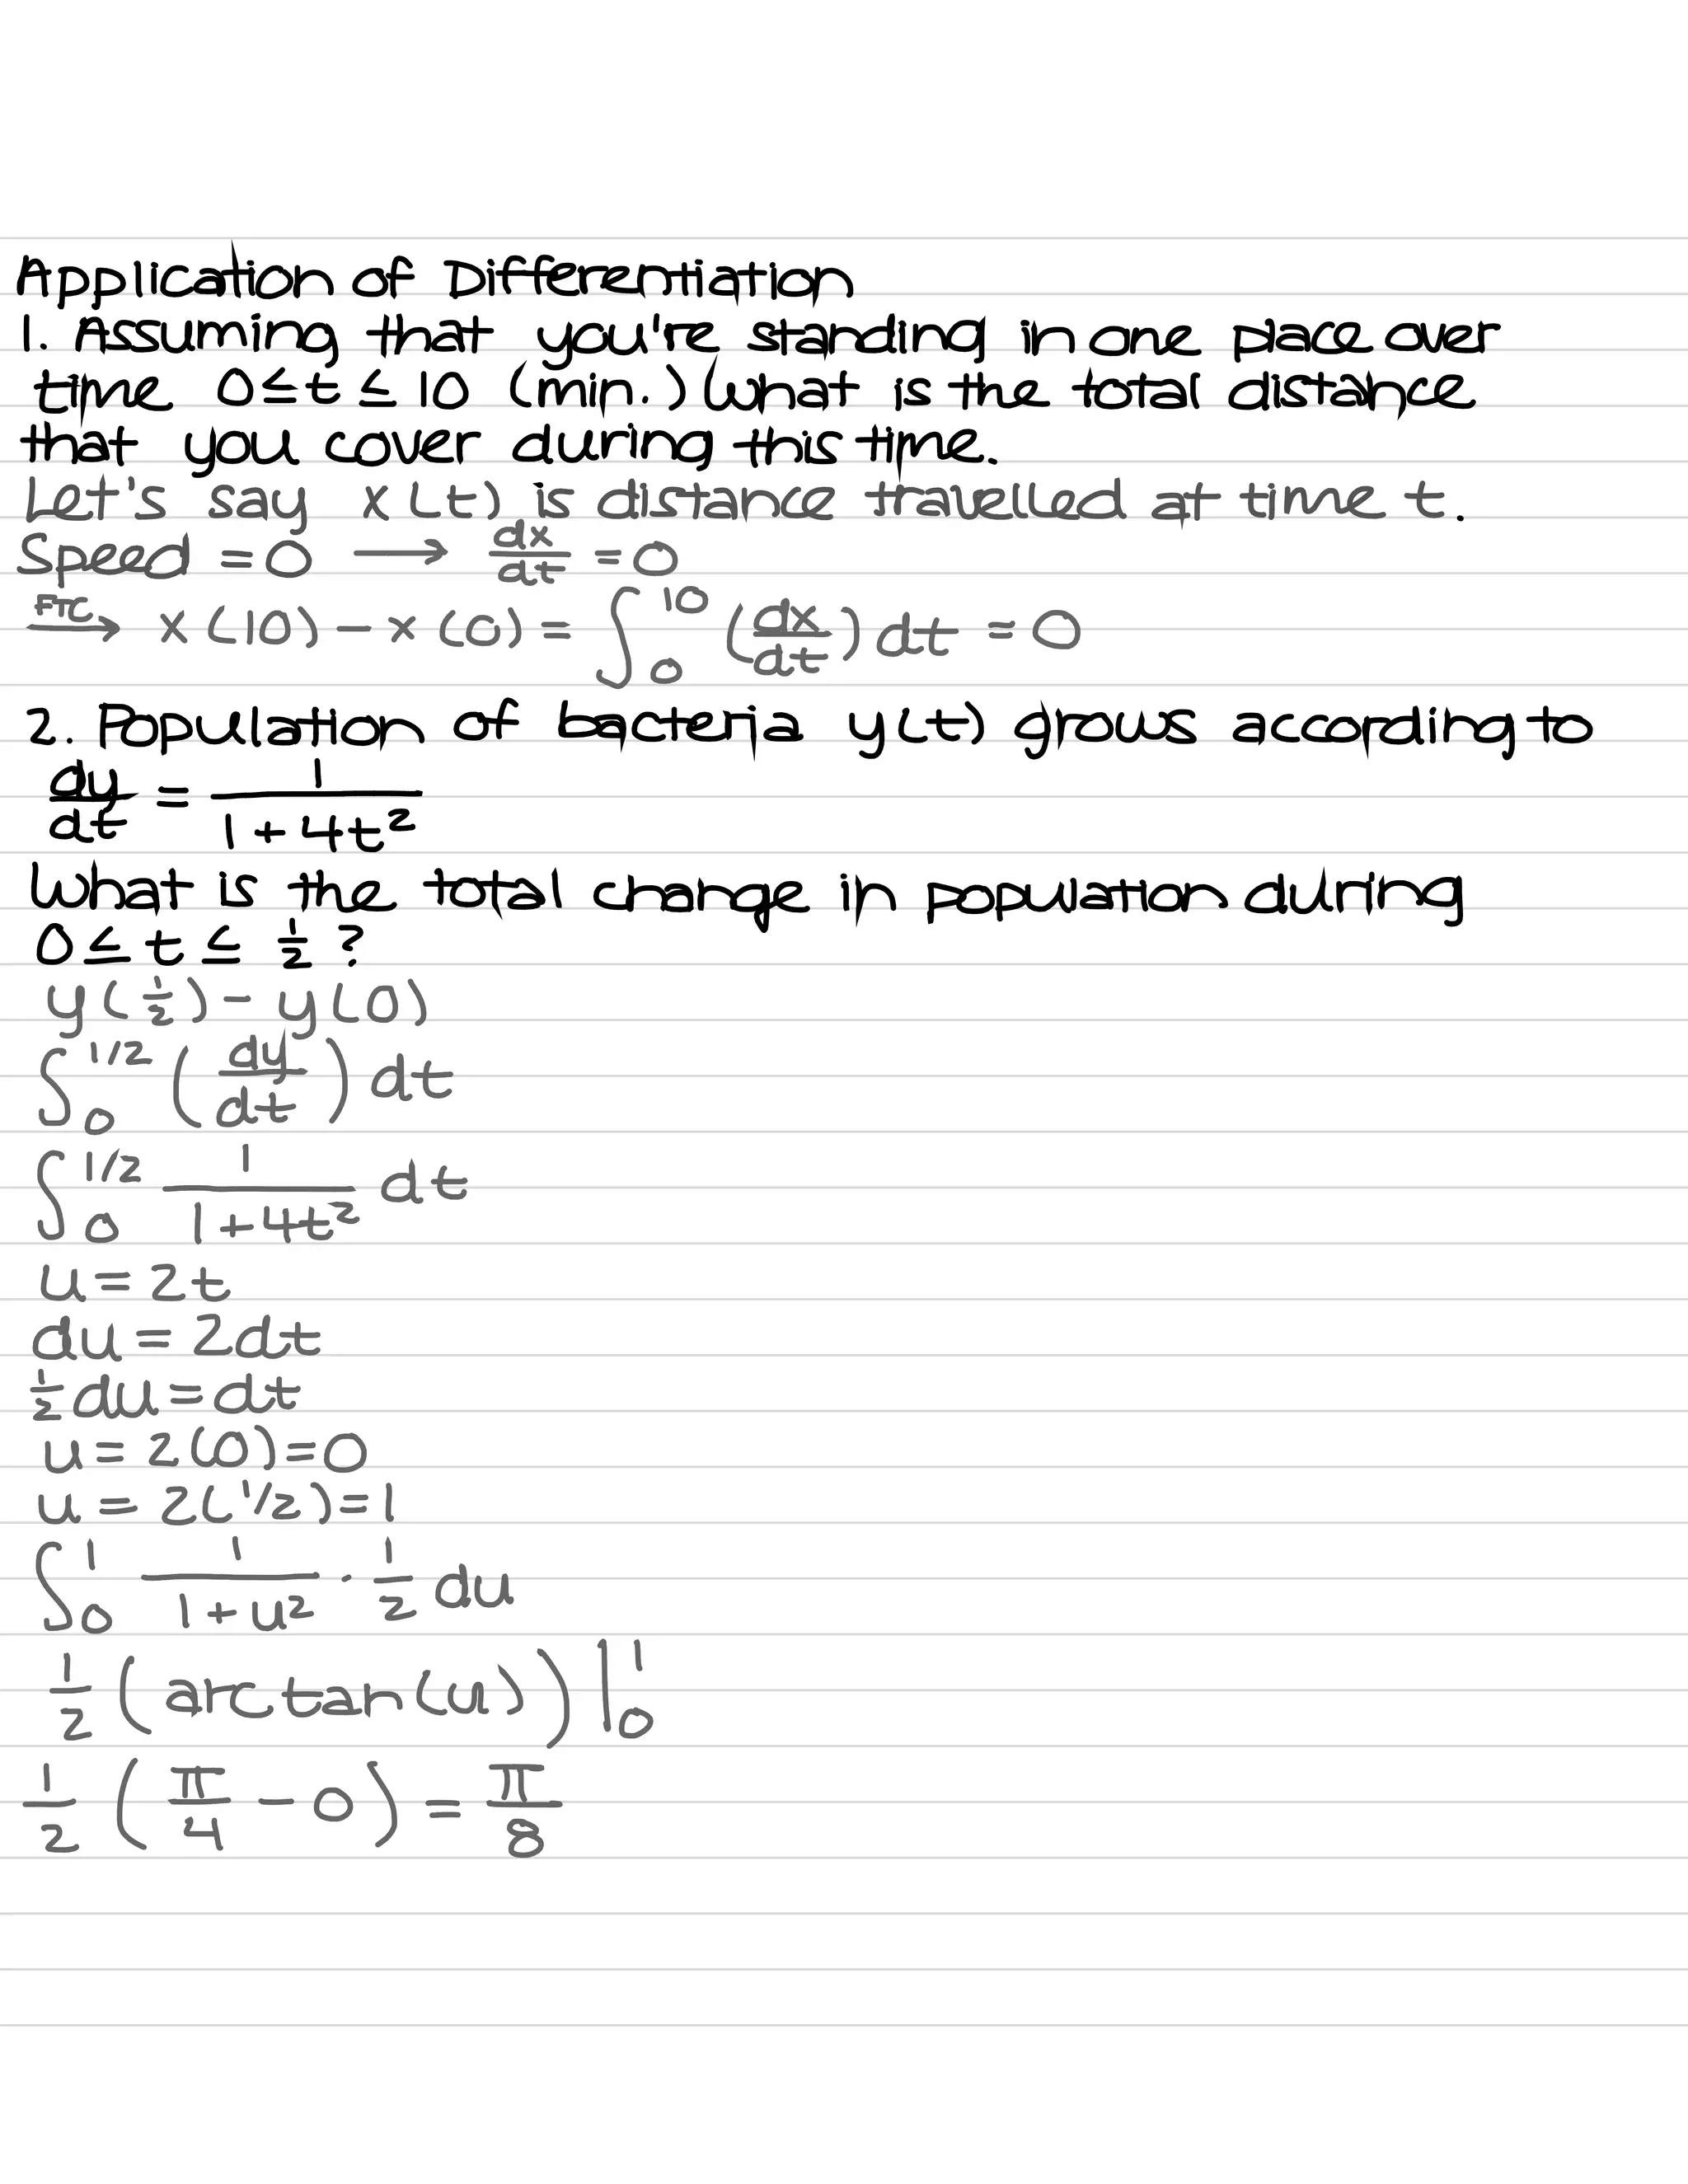 Application of Differentiation
1. Assuming that you're standing in one place over
time 0≤t≤10 (min.) What is the total distance
that you cover during this time.
Let's say x(t) is distance travelled at time t.
Speed = 0 → dx/dt = 0
FTC→ x(10) - x(0) = ∫₀¹⁰ (dx/dt) dt = 0
2. Population of bacteria y(t) grows according to
dy/dt = 1/(1+4t²)
What is the total change in population during
0≤t≤ 1/2 ?
y(1/2) - y(0)
∫₀^1/2 (dy/dt) dt
∫₀^1/2 1/(1+4t²) dt
u=2t
du=2dt
1/2 du=dt
u=2(0)=0
u=2(1/2)=1
∫₀¹ 1/(1+u²) · 1/2 du
1/2 (arctan(u)) |₀¹
1/2 (π/4 - 0) = π/8